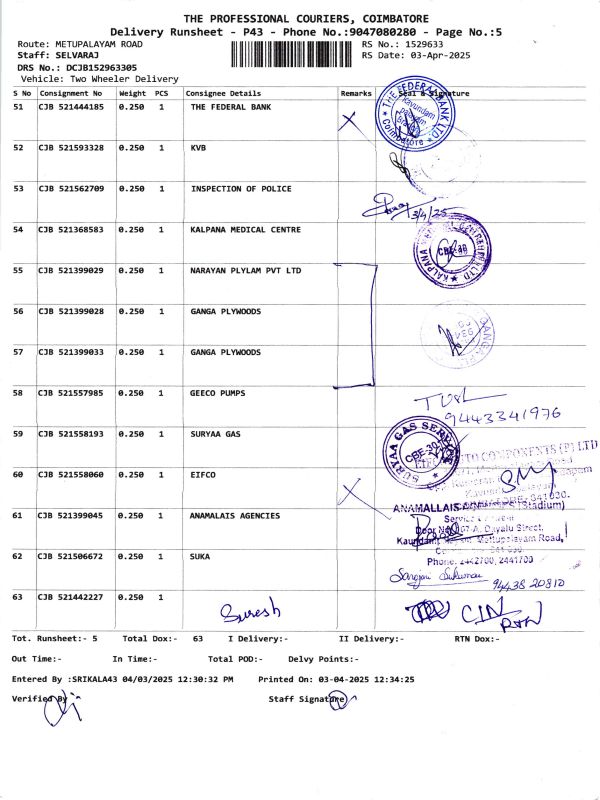 THE PROFESSIONAL COURIERS, COIMBATORE
Delivery Runsheet - P43 - Phone No.:9047080280 - Page No.:5
Route: METUPALAYAM ROAD RS No.: 1529633
Staff: SELVARAJ RS Date: 03-Apr-2025
DRS No.: DCJB152963305
Vehicle: Two Wheeler Delivery
S No Consignment No Weight PCS Consignee Details Remarks Seal & Signature
51 CJB 521444185 0.250 1 THE FEDERAL BANK X THE FEDERAL BANK LTD Coimbatore
52 CJB 521593328 0.250 1 KVB
53 CJB 521562709 0.250 1 INSPECTION OF POLICE 3/4/25
54 CJB 521368583 0.250 1 KALPANA MEDICAL CENTRE
55 CJB 521399029 0.250 1 NARAYAN PLYLAM PVT LTD
56 CJB 521399028 0.250 1 GANGA PLYWOODS
57 CJB 521399033 0.250 1 GANGA PLYWOODS
58 CJB 521557985 0.250 1 GEECO PUMPS 9443341976
59 CJB 521558193 0.250 1 SURYAA GAS SURYAA GAS SERVICE
60 CJB 521558060 0.250 1 EIFCO X COMPONENTS (P) LTD
ANAMALLAIS
61 CJB 521399045 0.250 1 ANAMALAIS AGENCIES
Mettupalayam Road,
62 CJB 521506672 0.250 1 SUKA Phone: 2442700, 2441700
94438 20810
63 CJB 521442227 0.250 1 Suresh
Tot. Runsheet:- 5 Total Dox:- 63 I Delivery:- II Delivery:- RTN Dox:-
Out Time:- In Time:- Total POD:- Delvy Points:-
Entered By :SRIKALA43 04/03/2025 12:30:32 PM Printed On: 03-04-2025 12:34:25
Verified By Staff Signature